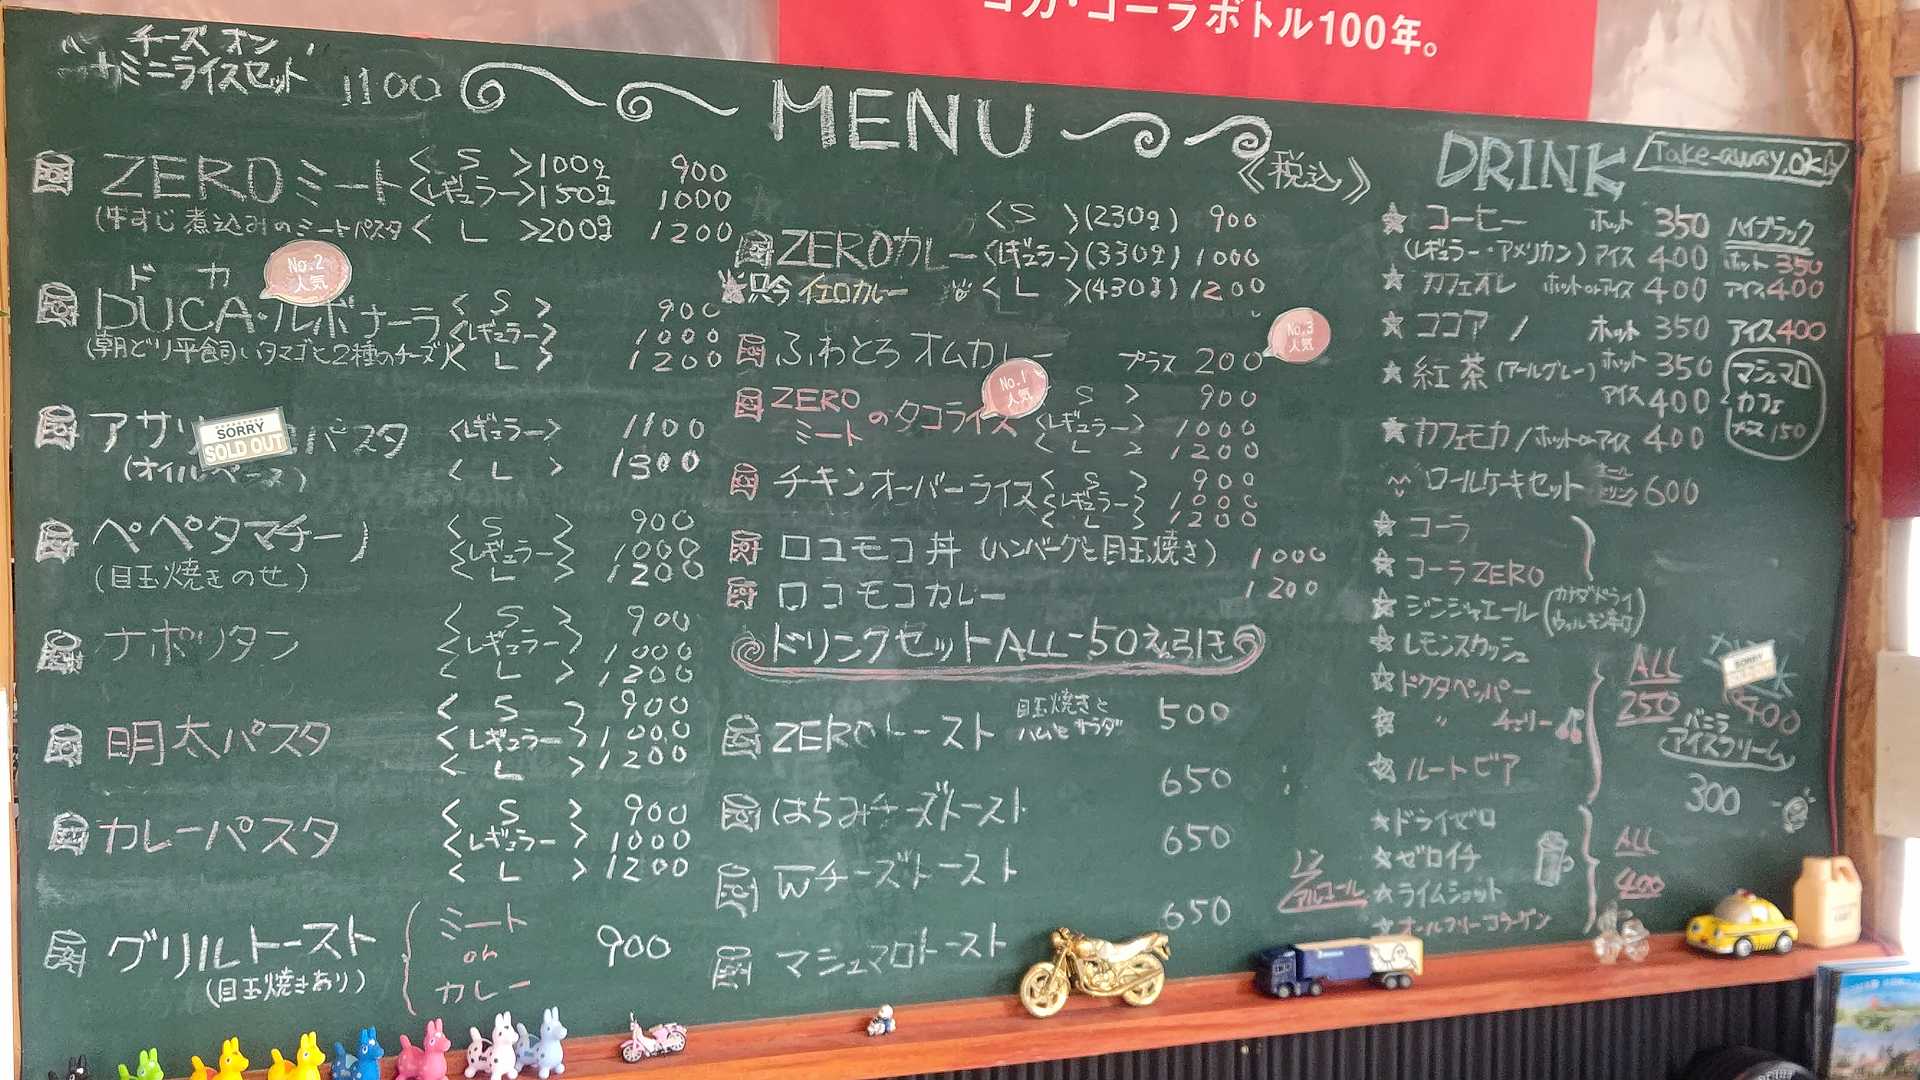 コカ・コーラボトル100年。
チーズ オン
ミニライスセット 1100
MENU
《税込》
ZEROミート <S>100g 900
<レギュラー>150g 1000
(牛すじ煮込みのミートパスタ <L>200g 1200
ドカ
No.2
人気
DUCA・ルボナーラ <S> 900
<レギュラー> 1000
(朝どり平飼いタマゴと2種のチーズ) <L> 1200
アサリ
SORRY
SOLD OUT
パスタ <レギュラー> 1100
(オイルベース) <L> 1300
ペペタマチーノ <S> 900
<レギュラー> 1000
(目玉焼きのせ) <L> 1200
ナポリタン <S> 900
<レギュラー> 1000
<L> 1200
明太パスタ <S> 900
<レギュラー> 1000
<L> 1200
カレーパスタ <S> 900
<レギュラー> 1000
<L> 1200
グリルトースト ミート or カレー 900
(目玉焼きあり)
ZEROカレー <S>(230g) 900
<レギュラー>(330g) 1000
只今 イエローカレー <L>(430g) 1200
ふわとろオムカレー プラス 200
No.3
人気
No.1
人気
ZERO
ミート
のタコライス <S> 900
<レギュラー> 1000
<L> 1200
チキンオーバーライス <S> 900
<レギュラー> 1000
<L> 1200
ロコモコ丼 (ハンバーグと目玉焼き) 1000
ロコモコカレー 1200
ドリンクセットALL-50え引き
ZEROトースト 目玉焼きと
ハムとサラダ 500
はちみチーズトースト 650
Wチーズトースト 650
マシュマロトースト 650
DRINK
Take-away.ok
コーヒー ホット 350
(レギュラー・アメリカン) アイス 400
ハイブラック
ホット 350
アイス400
カフェオレ ホットorアイス 400
ココア / ホット 350 アイス400
紅茶 (アールグレー) ホット 350
アイス 400
マシュマロ
カフェ
プラス 150
カフェモカ / ホットorアイス 400
ロールケーキセット オールドリンク 600
コーラ
コーラZERO
ジンジャエール (カナダドライ
ウィルキンソン)
レモンスカッシュ
ドクタペッパー
〃 チェリー
ルートビア
ALL
250
SORRY
400
バニラ
アイスクリーム
300
ノンアルコール
ドライゼロ
ゼロイチ
ライムショット
オールフリーコラーゲン
ALL
400